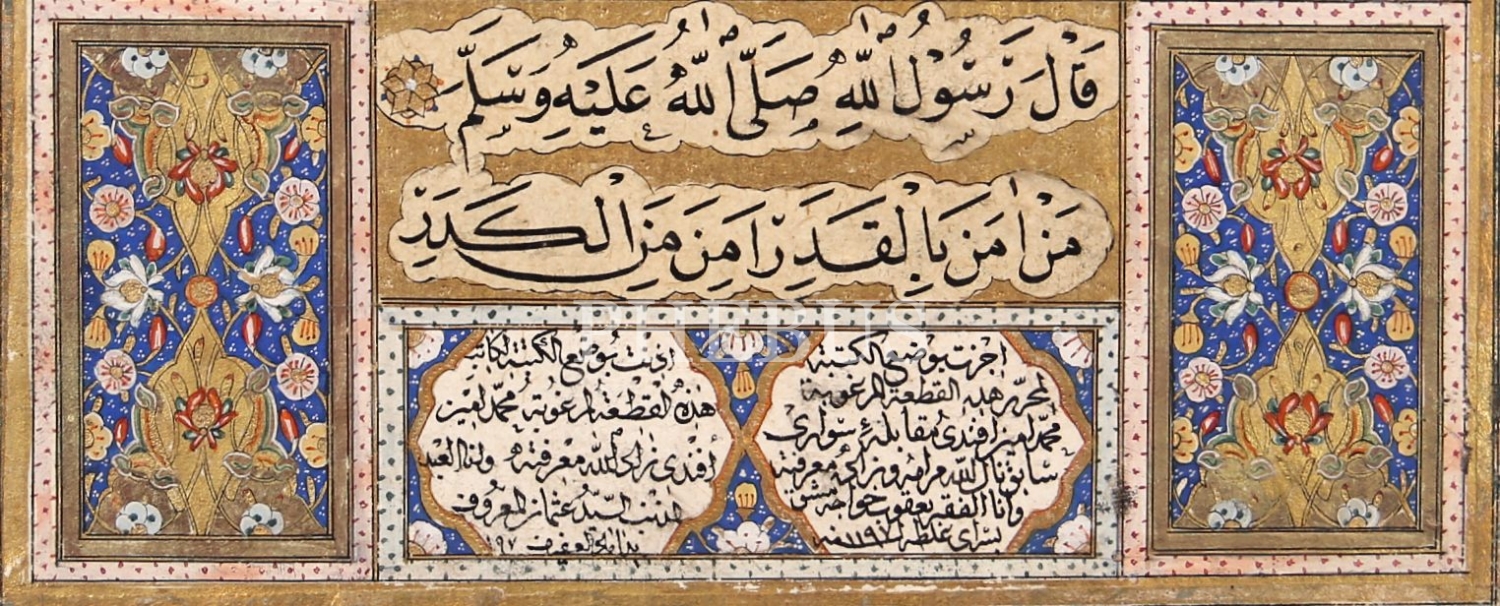 قَالَ رَسُوْلُ اللهِ صَلَّى اللهُ عَلَيْهِ وَسَلَّمَ
مَنْ اٰمَنَ بِالْقَدَرِ اَمِنَ مِنَ الْكَدَرِ
PHEBUS
اجزت بوضع الكتبة
لمحرر هذه القطعة المرغوبة
محمد امين افندى مقابلهٔ سوارى
سابق نال الله مرامه وزاد معرفته
وانا الفقير يعقوب خواجه مشق
بسراى غلطه ١١٩٧ سنه
اذنت بوضع الكتبة لكاتب
هذه القطعة المرغوبة محمد امين
افندى زاد الله معرفته وانا العبد
المذنب السيد عثمان المعروف
العفيف ١٩٧